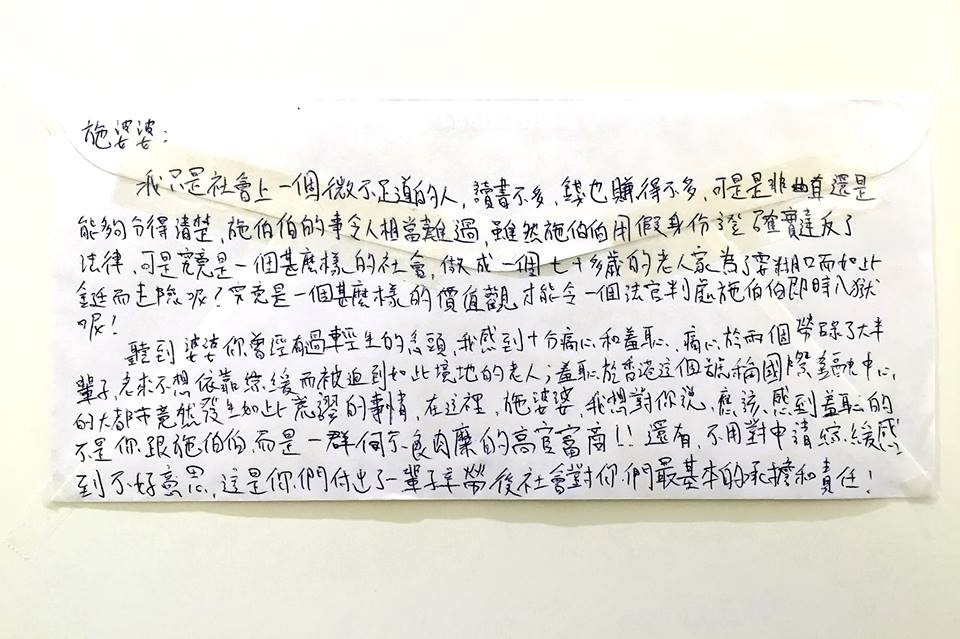 施婆婆：
我只是社會上一個微不足道的人，讀書不多，錢也賺得不多，可是是非曲直還是
能夠分得清楚，施伯伯的事令人相當難過，雖然施伯伯用假身份證確實違反了
法律，可是究竟是一個甚麼樣的社會，做成一個七十多歲的老人家為了要糊口而如此
鋌而走險呢？究竟是一個甚麼樣的價值觀才能令一個法官判處施伯伯即時入獄
呢！
聽到婆婆你曾經有過輕生的念頭，我感到十分痛心和羞恥，痛心於兩個勞碌了大半
輩子，老來不想依靠綜緩而被迫到如此境地的老人；羞恥於香港這個號稱國際金融中心，
的大都市竟然發生如此荒謬的事情，在這裡，施婆婆，我想對你說，應該感到羞恥的
不是你跟施伯伯，而是一群何不食肉糜的高官富商！！還有，不用對申請綜緩感
到不好意思，這是你們付出了一輩子辛勞後社會對你們最基本的承擔和責任！